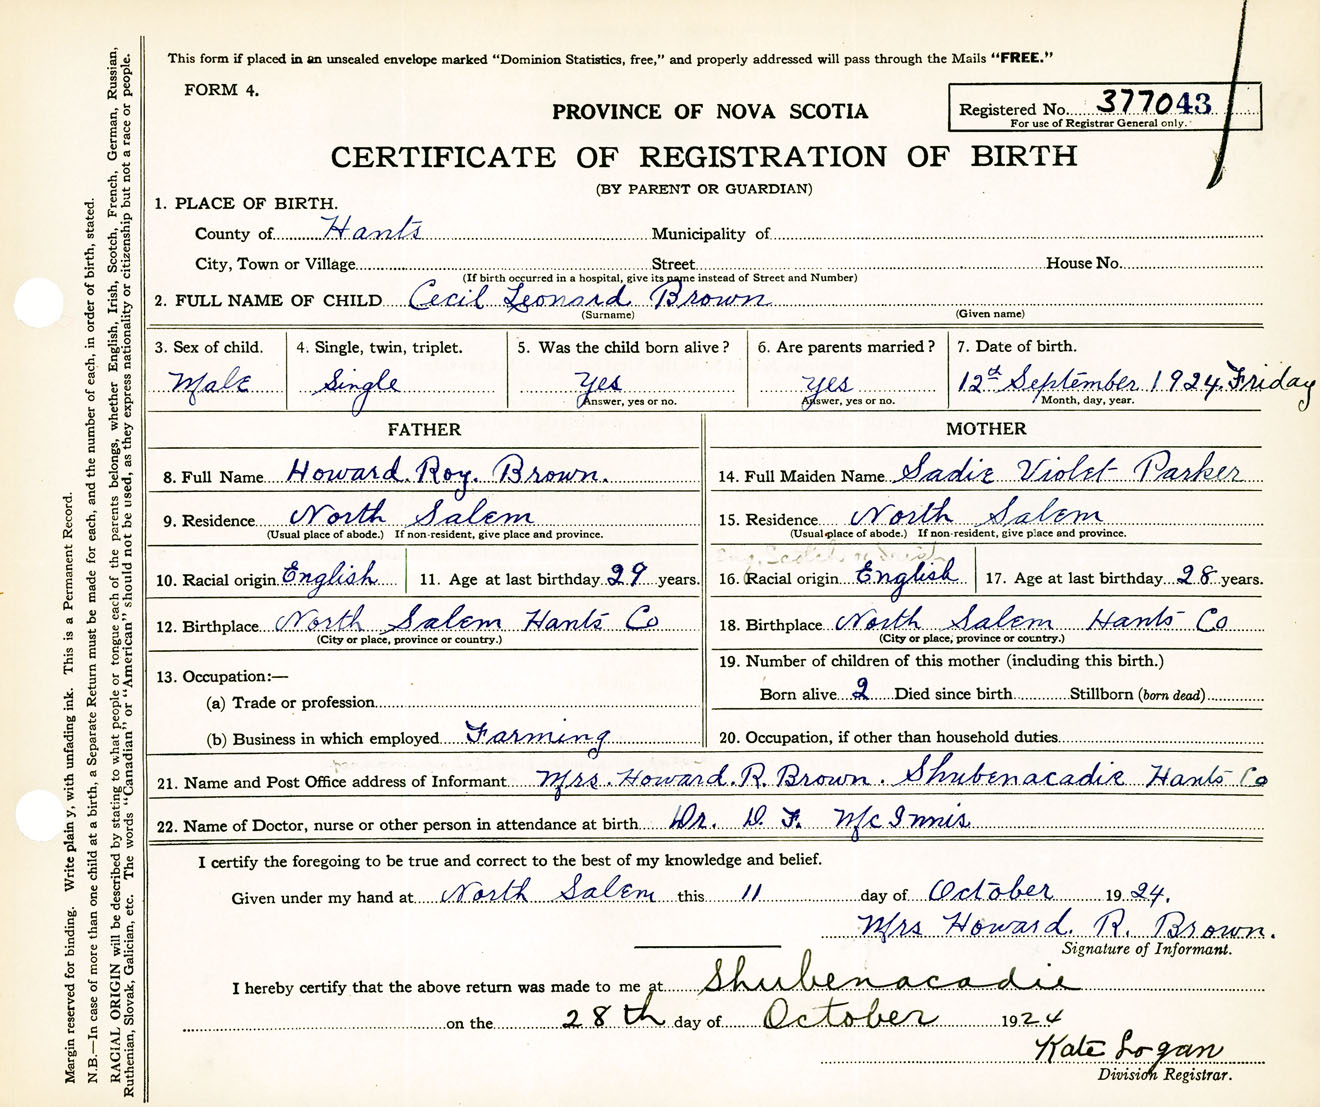 This form if placed in an unsealed envelope marked "Dominion Statistics, free," and properly addressed will pass through the Mails "FREE."
FORM 4.
PROVINCE OF NOVA SCOTIA
Registered No. 377043
For use of Registrar General only.
CERTIFICATE OF REGISTRATION OF BIRTH
(BY PARENT OR GUARDIAN)
1. PLACE OF BIRTH.
County of Hants Municipality of
City, Town or Village Street House No.
(If birth occurred in a hospital, give its name instead of Street and Number)
2. FULL NAME OF CHILD Cecil Leonard Brown
(Surname) (Given name)
3. Sex of child. 4. Single, twin, triplet. 5. Was the child born alive? 6. Are parents married? 7. Date of birth.
Male Single Yes Yes 12th September 1924. Friday
Answer, yes or no. Answer, yes or no. Month, day, year.
FATHER MOTHER
8. Full Name Howard. Roy. Brown. 14. Full Maiden Name Sadie Violet Parker
9. Residence North Salem 15. Residence North Salem
(Usual place of abode.) If non-resident, give place and province. (Usual place of abode.) If non-resident, give place and province.
10. Racial origin English 11. Age at last birthday 29 years. 16. Racial origin English 17. Age at last birthday 28 years.
12. Birthplace North Salem Hants Co 18. Birthplace North Salem Hants Co
(City or place, province or country.) (City or place, province or country.)
13. Occupation:— 19. Number of children of this mother (including this birth.)
(a) Trade or profession Born alive 2 Died since birth Stillborn (born dead)
(b) Business in which employed Farming 20. Occupation, if other than household duties
21. Name and Post Office address of Informant Mrs. Howard. R. Brown. Shubenacadie Hants Co
22. Name of Doctor, nurse or other person in attendance at birth Dr. D. F. McInnis
I certify the foregoing to be true and correct to the best of my knowledge and belief.
Given under my hand at North Salem this 11 day of October 1924.
Mrs Howard. R. Brown.
Signature of Informant.
I hereby certify that the above return was made to me at Shubenacadie
on the 28th day of October 1924
Kate Logan
Division Registrar.
Margin reserved for binding. Write plain y, with unfading ink. This is a Permanent Record.
N.B.—In case of more than one child at a birth, a Separate Return must be made for each, and the number of each, in order of birth, stated.
RACIAL ORIGIN will be described by stating to what people or tongue each of the parents belongs, whether English, Irish, Scotch, French, German, Russian,
Ruthenian, Slovak, Galician, etc. The words "Canadian" or "American" should not be used, as they express nationality or citizenship but not a race or people.